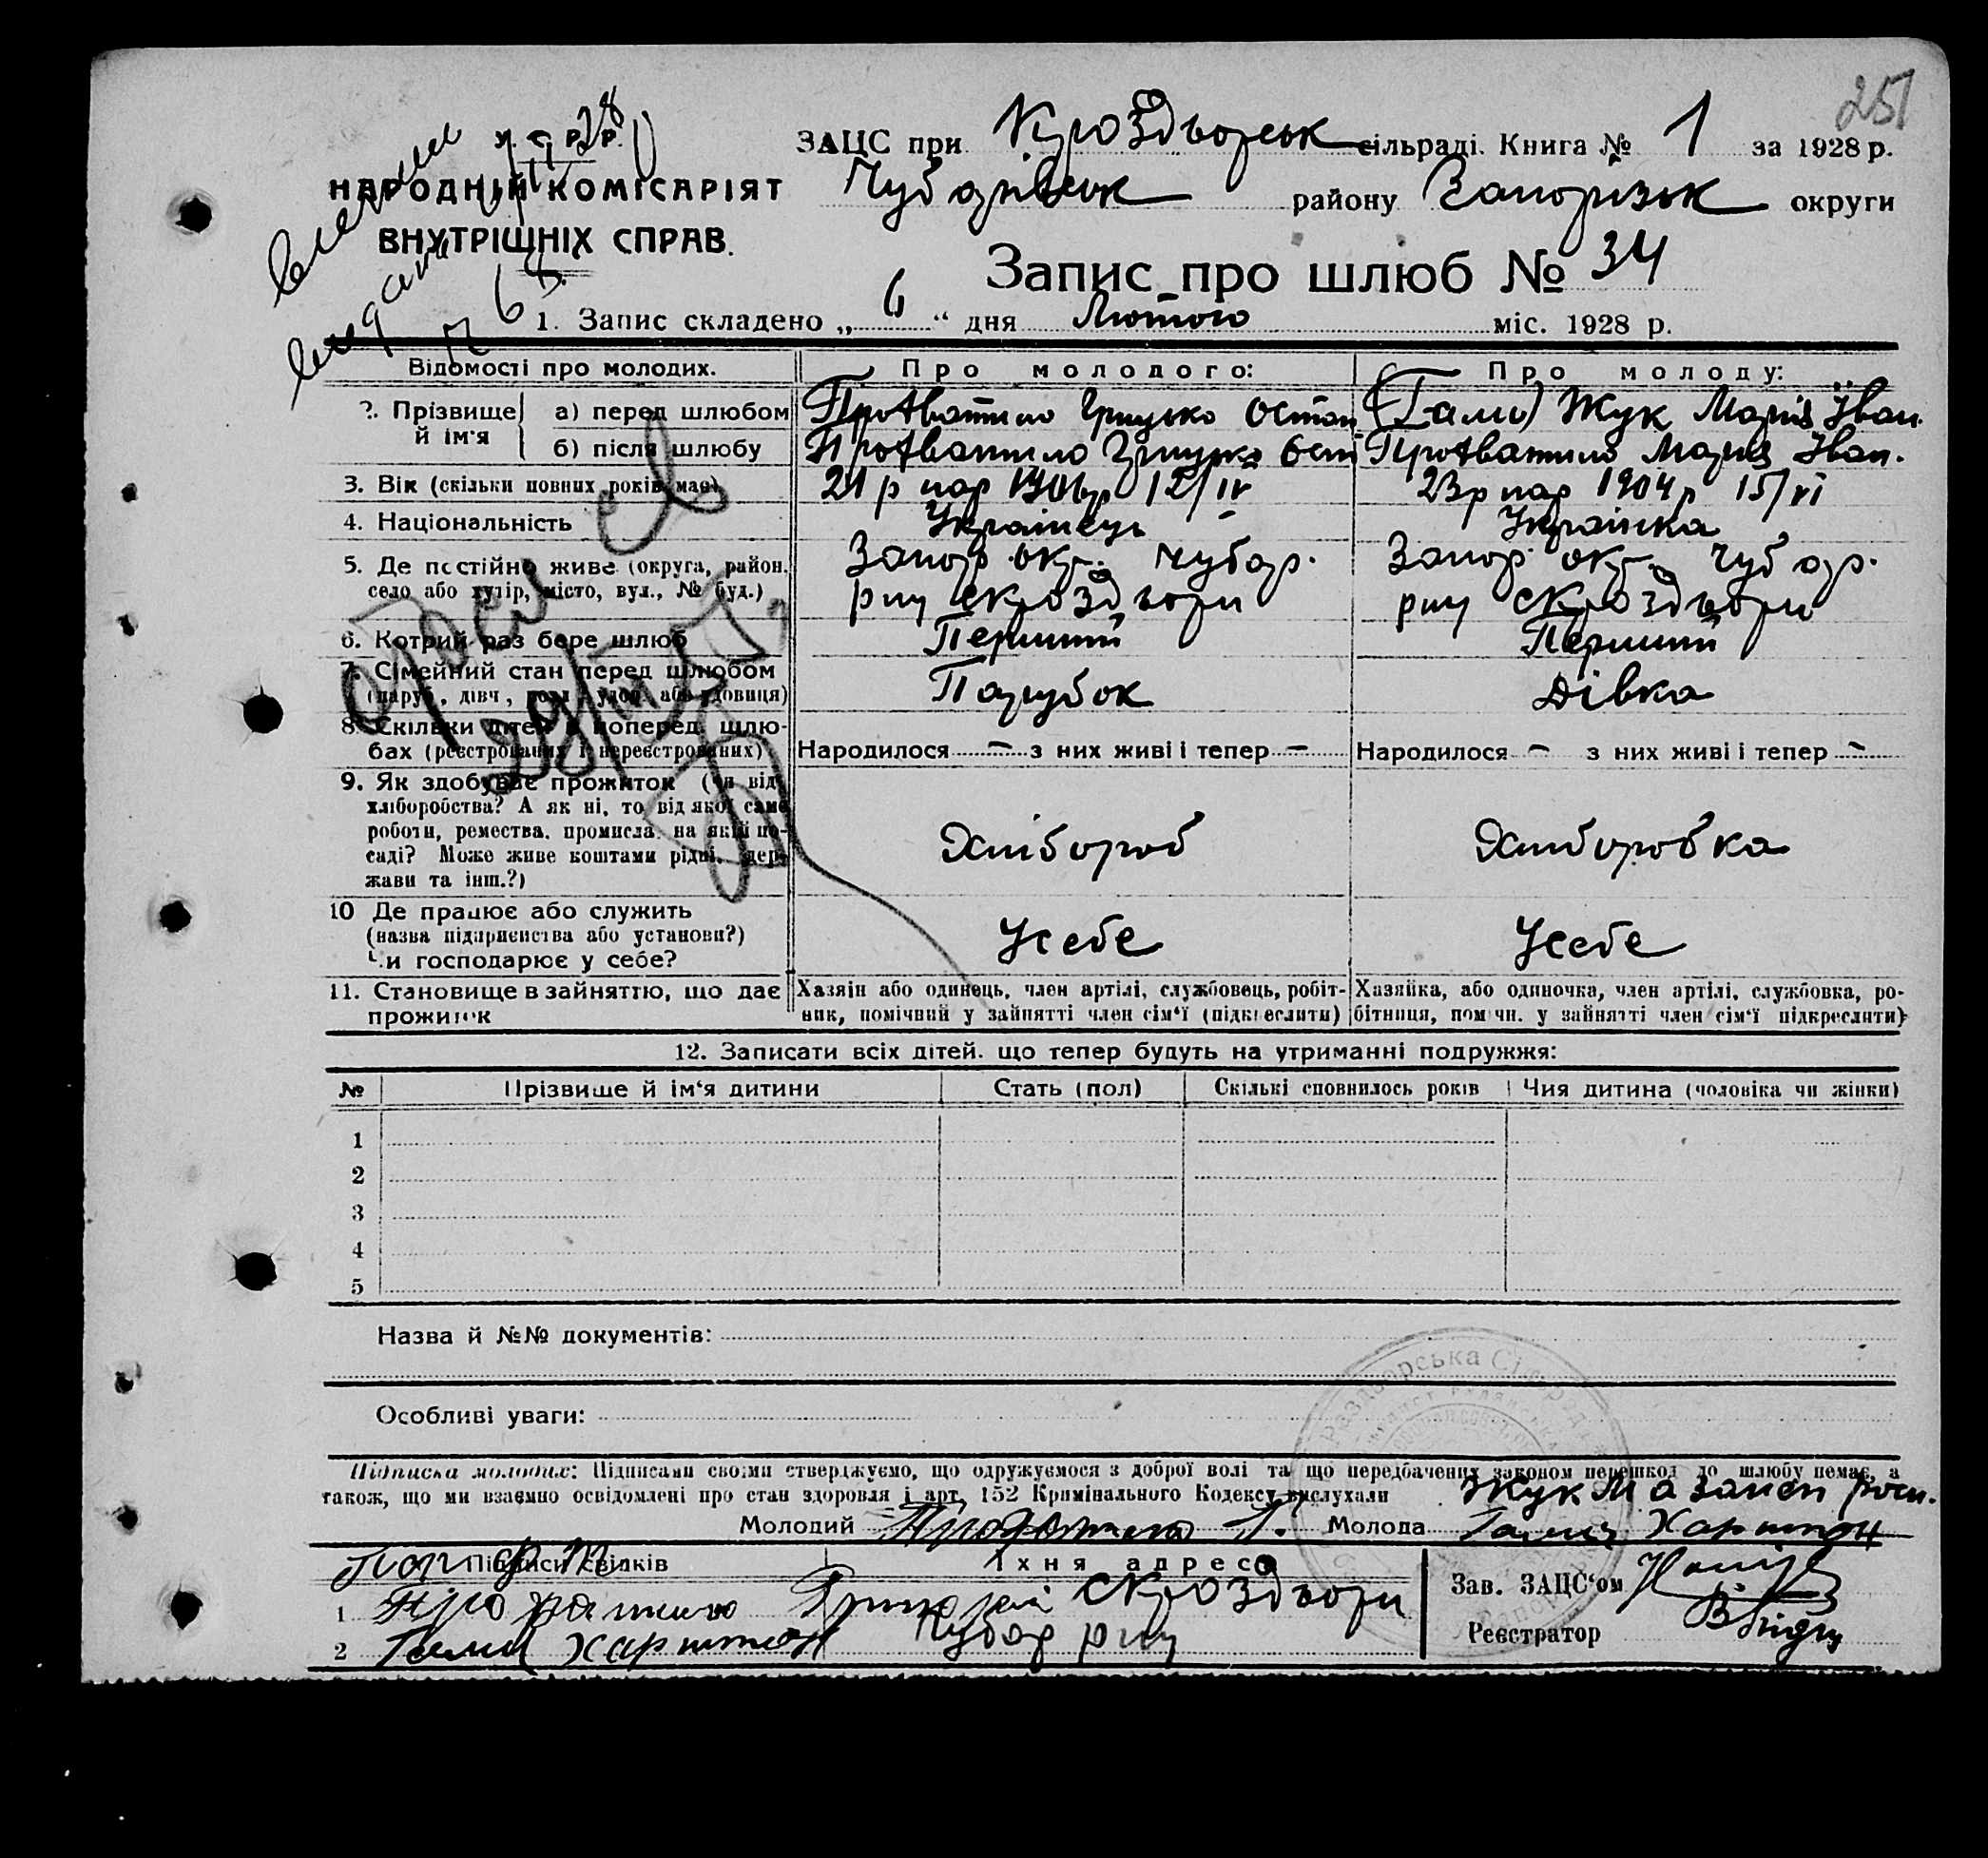 251
У. С. Р. Р.
НАРОДНІЙ КОМІСАРІЯТ
ВНУТРІШНІХ СПРАВ.
ЗАЦС при Кроздворськ сільраді. Книга № 1 за 1928 р.
Чубарівськ району Запорізьк округи
Запис про шлюб № 34
1. Запис складено „ 6 “ дня Лютого міс. 1928 р.
Відомості про молодих. Про молодого: Про молоду:
2. Прізвище й ім'я а) перед шлюбом Грицько Остап Жук Марія Іван.
б) після шлюбу Марія Іван.
3. Вік (скільки повних років має) 21 р нар 1906 р 12/IV 23 р нар 1904 р 15/VI
4. Національність Українець Українка
5. Де постійно живе (округа, район, Запор. окр. Чубар. Запор. окр. Чубар.
село або хутір, місто, вул., № буд.) р-ну с Кроздвори р-ну с Кроздвори
6. Котрий раз бере шлюб Перший Перший
7. Сімейний стан перед шлюбом Парубок Дівка
(паруб., дівч., розл., удов. або вдовиця)
8. Скільки дітей в поперед. шлю-
бах (реєстрованих і нереєстрованих) Народилося — з них живі і тепер — Народилося — з них живі і тепер —
9. Як здобуває прожиток (чи від
хліборобства? А як ні, то від якої саме
роботи, ремества, промисла, на якій по- Хлібороб Хліборобка
саді? Може живе коштами рідні, дер-
жави та інш.?)
10 Де працює або служить
(назва підприємства або установи?) Усебе Усебе
Чи господарює у себе?
11. Становище в зайняттю, що дає Хазяїн або одинець, член артілі, службовець, робіт- Хазяйка, або одиночка, член артілі, службовка, ро-
прожиток ник, помічний у зайнятті член сім'ї (підкреслити) бітниця, помічн. у зайнятті член сім'ї підкреслити)
12. Записати всіх дітей, що тепер будуть на утриманні подружжя:
№ Прізвище й ім'я дитини Стать (пол) Скількі сповнилось років Чия дитина (чоловіка чи жінки)
1
2
3
4
5
Назва й №№ документів:
Особливі уваги:
Підписка молодих: Підписами своїми стверджуємо, що одружуємося з доброї волі та що передбачених законом перешкод до шлюбу немає, а
також, що ми взаємно освідомлені про стан здоровля і арт. 152 Кримінального Кодексу вислухали Жук М
Молодий Молода Харитон
Підписи свідків Їхня адреса
1 Григорій с Кроздвори Зав. ЗАЦС'ом
2 Харитон Чубар р-ну Реєстратор